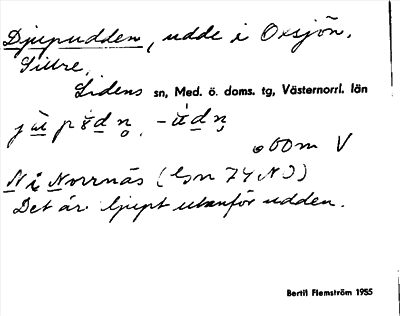 Djupudden, udde i Oxsjön,
Sillre,
Lidens sn, Med. ö. doms. tg, Västernorrl. län
V
N i Norrnäs
Det är djupt utanför udden.
Bertil Flemström 1955